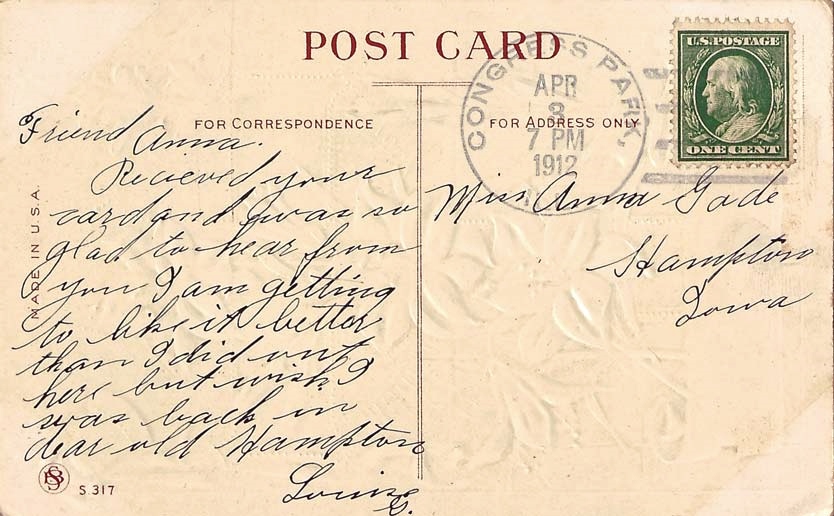 POST CARD
FOR CORRESPONDENCE
FOR ADDRESS ONLY
U.S. POSTAGE
ONE CENT
CONGRESS PARK,
APR
3
7 PM
1912
Friend Anna.
Recieved your
card and I was so
glad to hear from
you I am getting
to like it better
than I did out
here but wish I
was back in
dear old Hampton
Louise
G.
Miss Anna Gade
Hampton
Iowa
MADE IN U.S.A.
S.317